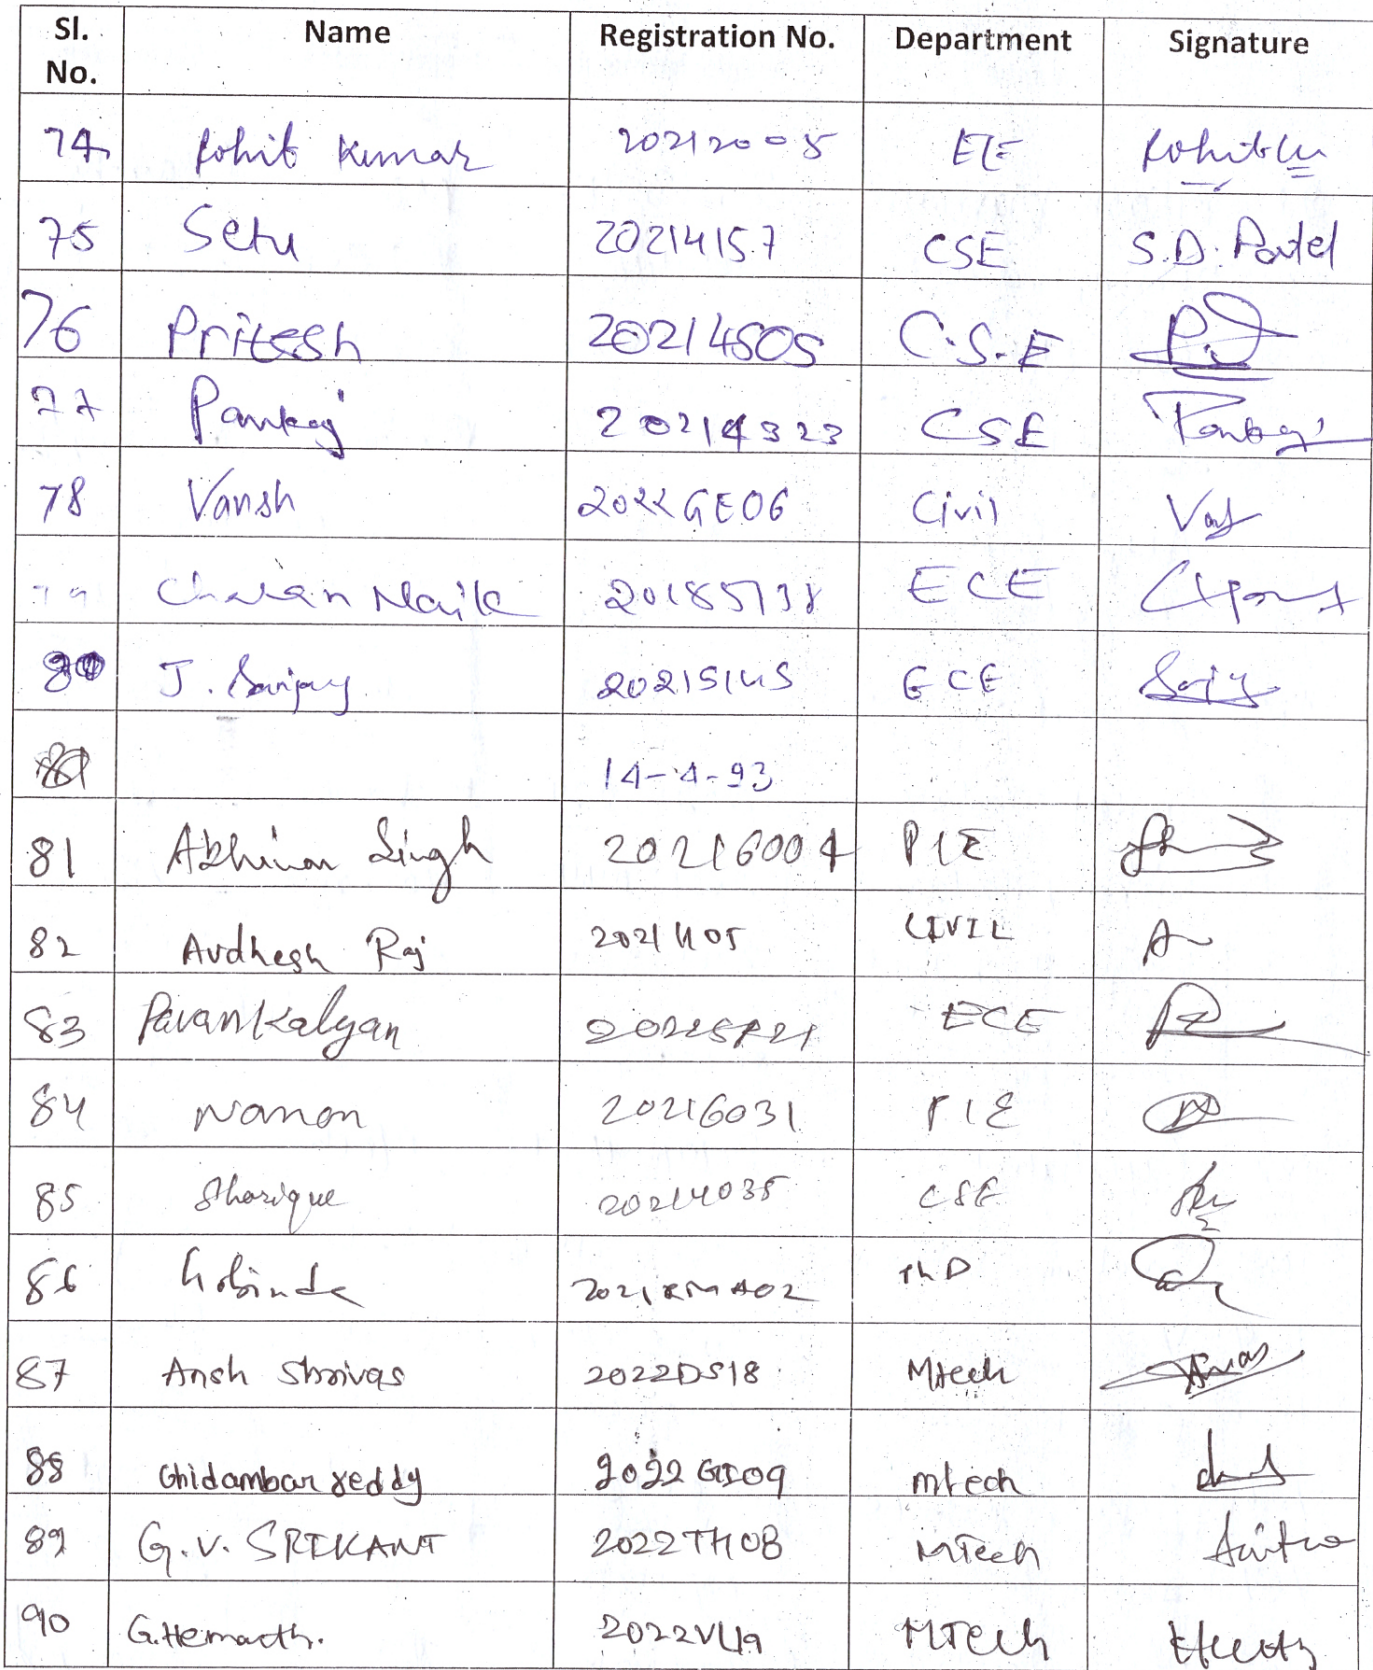 Sl. No. Name Registration No. Department Signature
74 Rohit Kumar 20212005 EE Rohit Ku
75 Setu 20214157 CSE S.D. Patel
76 Pritesh 20214505 C.S.E
77 Pankaj 20214323 CSE Pankaj
78 Vansh 2022GE06 Civil
79 Chetan Naik 20185138 ECE
80 J. Sanjay 20215145 ECE
14-4-93
81 Abhinav Singh 20216004 PIE
82 Avdhesh Raj 20211105 CIVIL
83 Pavan Kalyan ECE
84 Naman 20216031 PIE
85 Sharique 20214035 CSE
86 Gobinda 2021RMA02 PhD
87 Ansh Shrivas 2022DS18 Mtech
88 Chidambar reddy 2022GI09 mtech
89 G.V. SRIKANT 2022TH08 MTech
90 G.Hemanth. 2022VL19 MTech